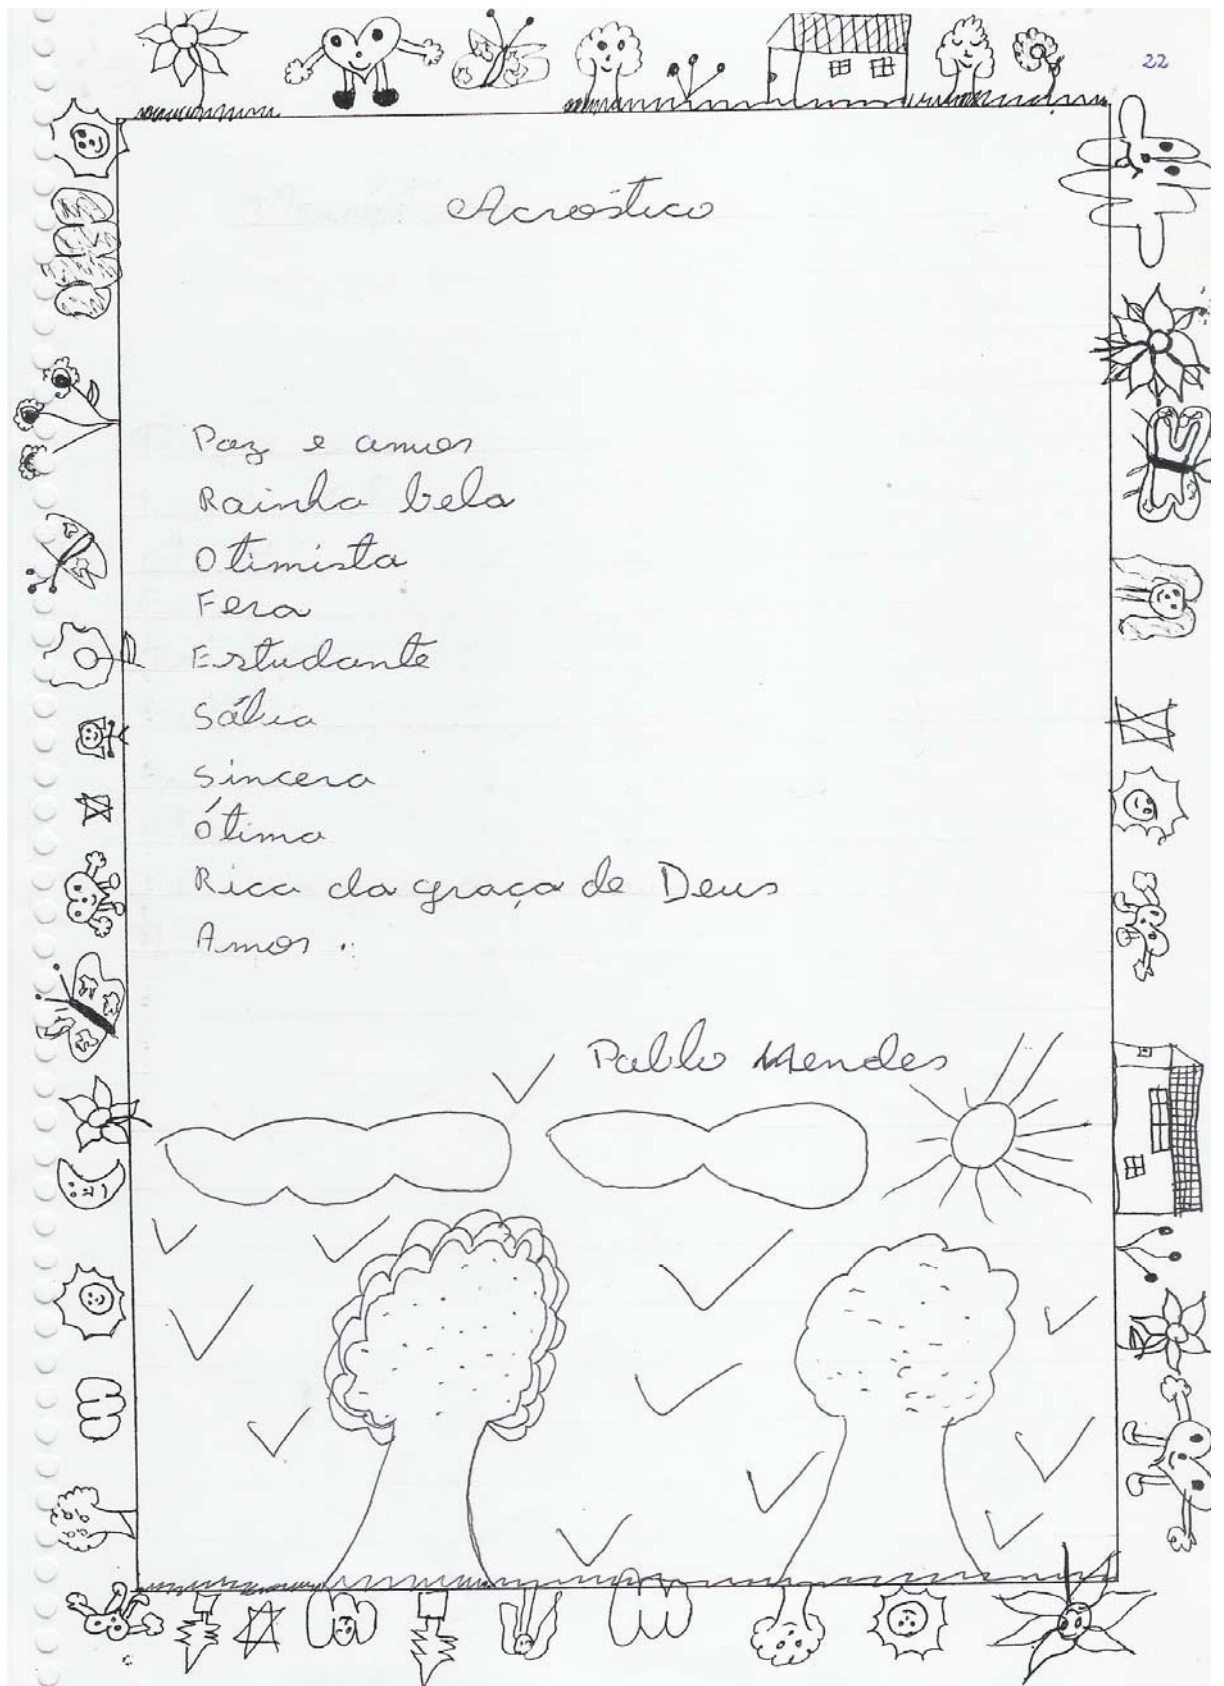 22
Acróstico
Paz e amor
Rainha bela
Otimista
Fera
Estudante
Sábia
Sincera
Ótima
Rica da graça de Deus
Amor..
Pablo Mendes